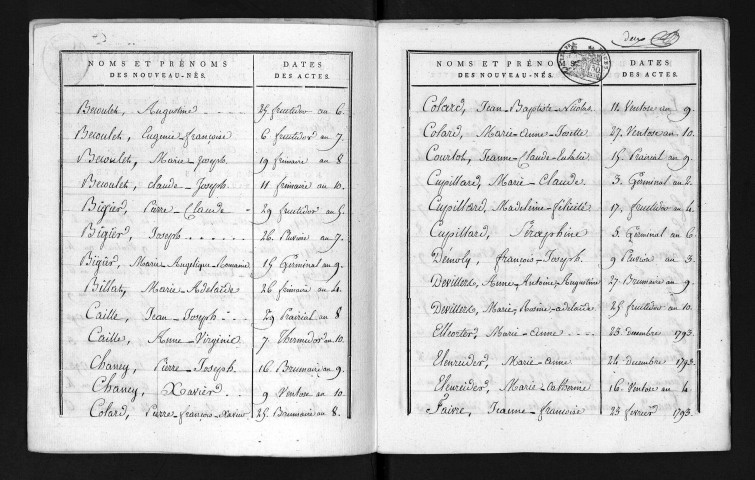 NOMS ET PRÉNOMS DES NOUVEAU-NÉS. DATES DES ACTES.
Beroulet, Augustine 25 fructidor an 6.
Beroulet, Eugenie-françoise 6 fructidor an 7.
Beroulet, Marie-Joseph 19 frimaire an 8
Beroulet, Claude-Joseph. 11 frimaire an 10.
Bigier, Pierre-Claude 29 fructidor an 5.
Bigier, Joseph 26 Pluviose an 7.
Bigier, Marie-Angelique-Romaine 15 Germinal an 9.
Billat, Marie-Adelaïde 26 frimaire an 4.
Caille, Jean-Joseph 29 Prairial an 8
Caille, Anne-Virginie 7 Thermidor an 10.
Chaney, Pierre-Joseph. 16 Brumaire an 9.
Chaney, Xavier 9 Ventose an 10.
Colard, Pierre-françois-Xavier 25 Brumaire an 8.
deux
NOMS ET PRÉNOMS DES NOUVEAU-NÉS. DATES DES ACTES.
Colard, Jean-Baptiste-Nicolas 11 Ventose an 9.
Colard, Marie-Anne-Josette 27 Ventose an 10.
Courtot, Jeanne-Claude-Eulalie 15 Prairial an 9.
Cupillard, Marie-Claude. 3 Germinal an 2.
Cupillard, Madeleine-félicité 17 fructidor an 4.
Cupillard, Séraphine 5 Germinal an 6.
Démoly, françois-Joseph. 9 Pluviose an 3.
Devillers, Anne-Antoine-Augustine 27 Brumaire an 9.
Devillers, Marie-Rosine-adelaïde 25 fructidor an 10.
Marie-Anne 23 decembre 1793.
Eleureider, Marie-Anne 24 decembre 1793.
Eleureider, Marie-Catherine 16 Ventose an 4.
Faivre, Jeanne-françoise 23 fevrier 1793.